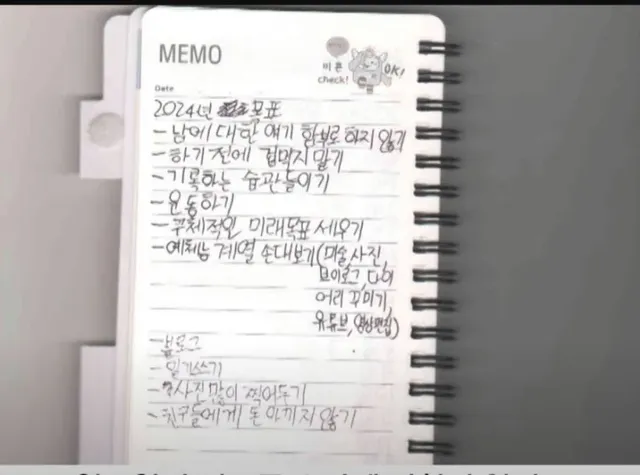 MEMO
미션
check!
OK!
Date
2024년 목표
-남에 대한 얘기 함부로 하지 않기
-하기 전에 겁먹지 말기
-기록하는 습관들이기
-운동하기
-구체적인 미래목표 세우기
-예체능 계열 손대보기(미술,사진,
브이로그, 다이
어리 꾸미기,
유튜브, 영상편집)
-블로그
-일기쓰기
-사진 많이 찍어두기
-친구들에게 돈 아끼지 않기